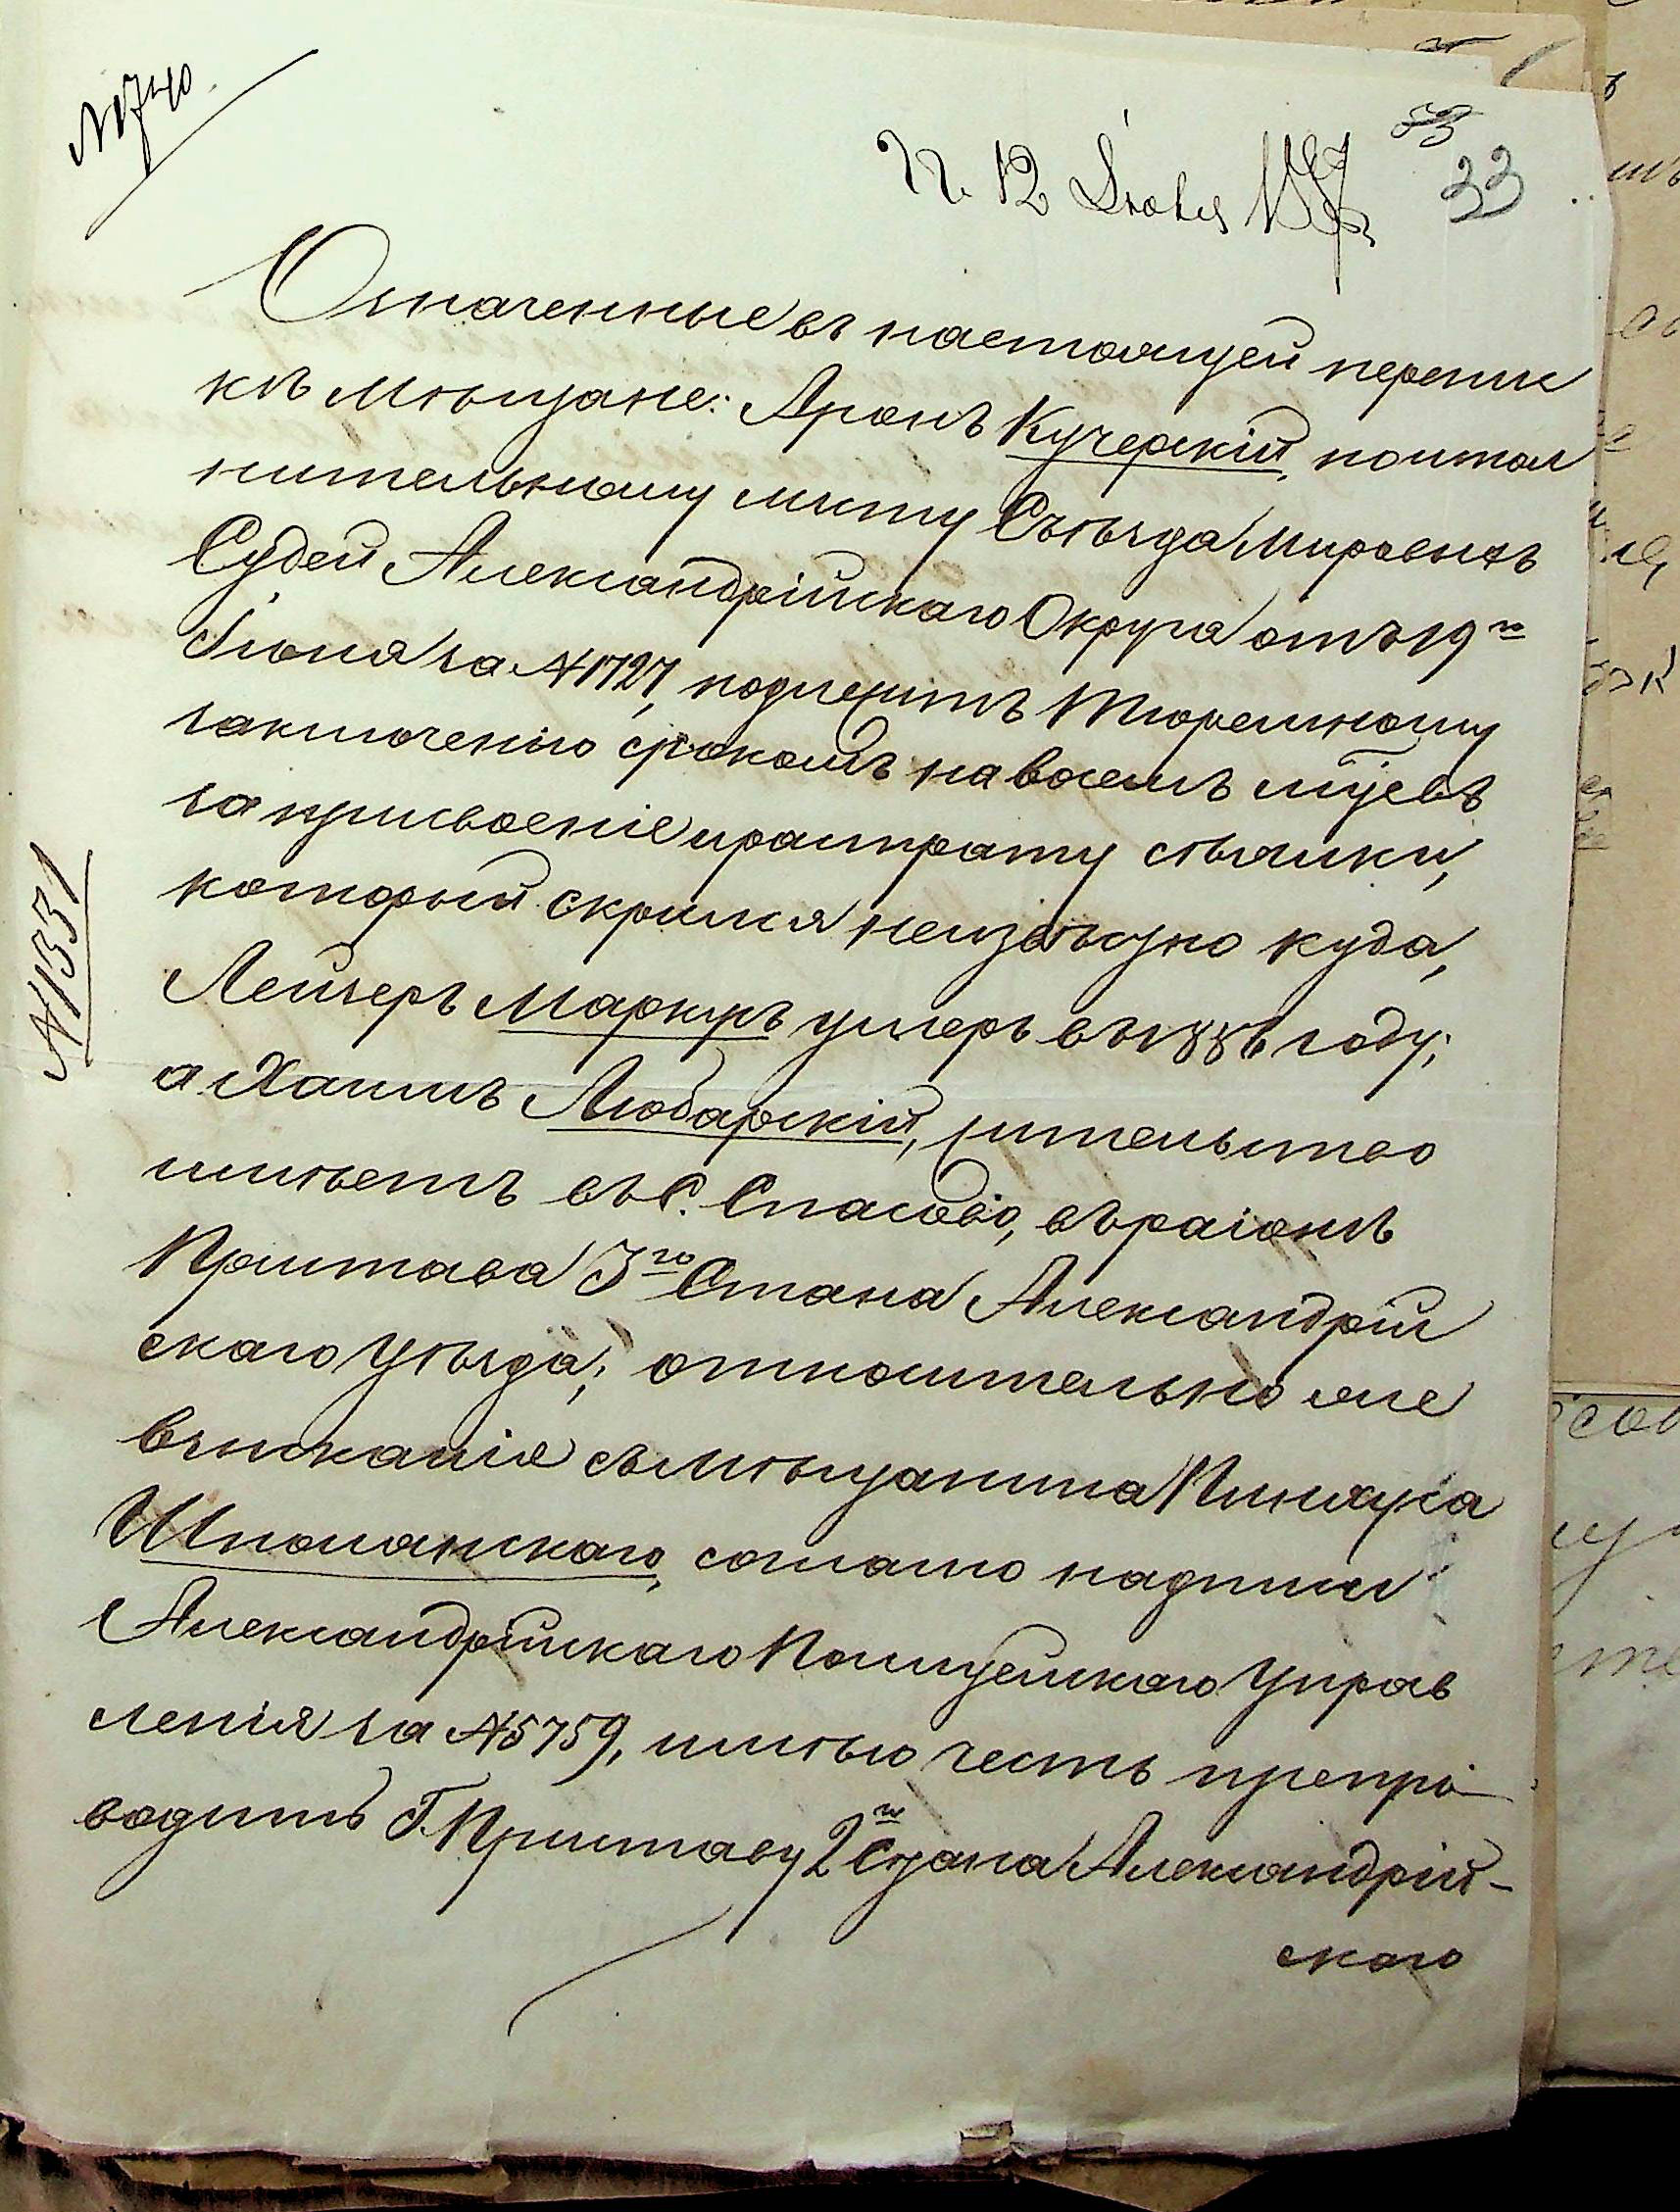 №740
П. 12 Іюля 1887
33
Означенные въ настоящей перепис
кѣ мѣщане: Аронъ Кучерскій, поиспол
нительному листу Съѣзда Мировыхъ
Судей Александрійскаго Округа отъ 19го
Іюня за №1727, подлежитъ тюремному
заключенію срокомъ на восемь мѣсяцевъ
за присвоеніе и растрату сѣялки,
который скрылся неизвѣстно куда,
Лейзеръ Маркусъ умеръ въ 1886 году;
а Хаимъ Любарскій, жительство
имѣетъ въ с. Спасово, въ раіонѣ
Пристава 3го Стана Александрій
скаго Уѣзда; относительно же
взысканія съ мѣщанина Пинхуса
Шполянскаго, согласно надписи
Александрійскаго Полицейскаго Управ
ленія за №5759, имѣю честь препро
водить Г. Приставу 2го Стана Александрій-
скаго
№1331